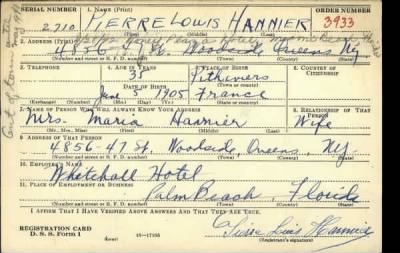 SERIAL NUMBER 1. NAME (Print) ORDER NUMBER
2,710 PIERRE LOUIS HANNIER 3933
2. ADDRESS (Print)
4856-47 St. Woodside Queens NY
(Number and street or R. F. D. number) (Town) (County) (State)
3. TELEPHONE 4. AGE IN YEARS 5. PLACE OF BIRTH 6. COUNTRY OF CITIZENSHIP
Pithiviers
DATE OF BIRTH (Town or county)
June 5 1905 France
(Exchange) (Number) (Mo.) (Day) (Yr.) (State or country)
7. NAME OF PERSON WHO WILL ALWAYS KNOW YOUR ADDRESS 8. RELATIONSHIP OF THAT PERSON
Mrs. Maria Hannier Wife
(Mr., Mrs., Miss) (First) (Middle) (Last)
9. ADDRESS OF THAT PERSON
4856-47 St. Woodside, Queens, NY.
(Number and street or R. F. D. number) (Town) (County) (State)
10. EMPLOYER'S NAME
Whitehall Hotel
11. PLACE OF EMPLOYMENT OR BUSINESS
Palm Beach, Florida
(Number and street or R. F. D. number) (Town) (County) (State)
I AFFIRM THAT I HAVE VERIFIED ABOVE ANSWERS AND THAT THEY ARE TRUE.
REGISTRATION CARD
D. S. S. Form 1 (over) 16-17105 (Registrant's signature)
Pierre Louis Hannier